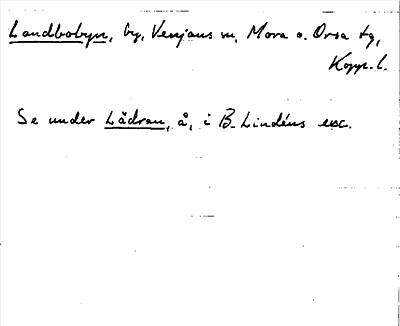 Landbobyn, by, Venjans sn, Mora o. Orsa tg,
Kopp. l.
Se under Lådran, å, i B. Lindéns exc.